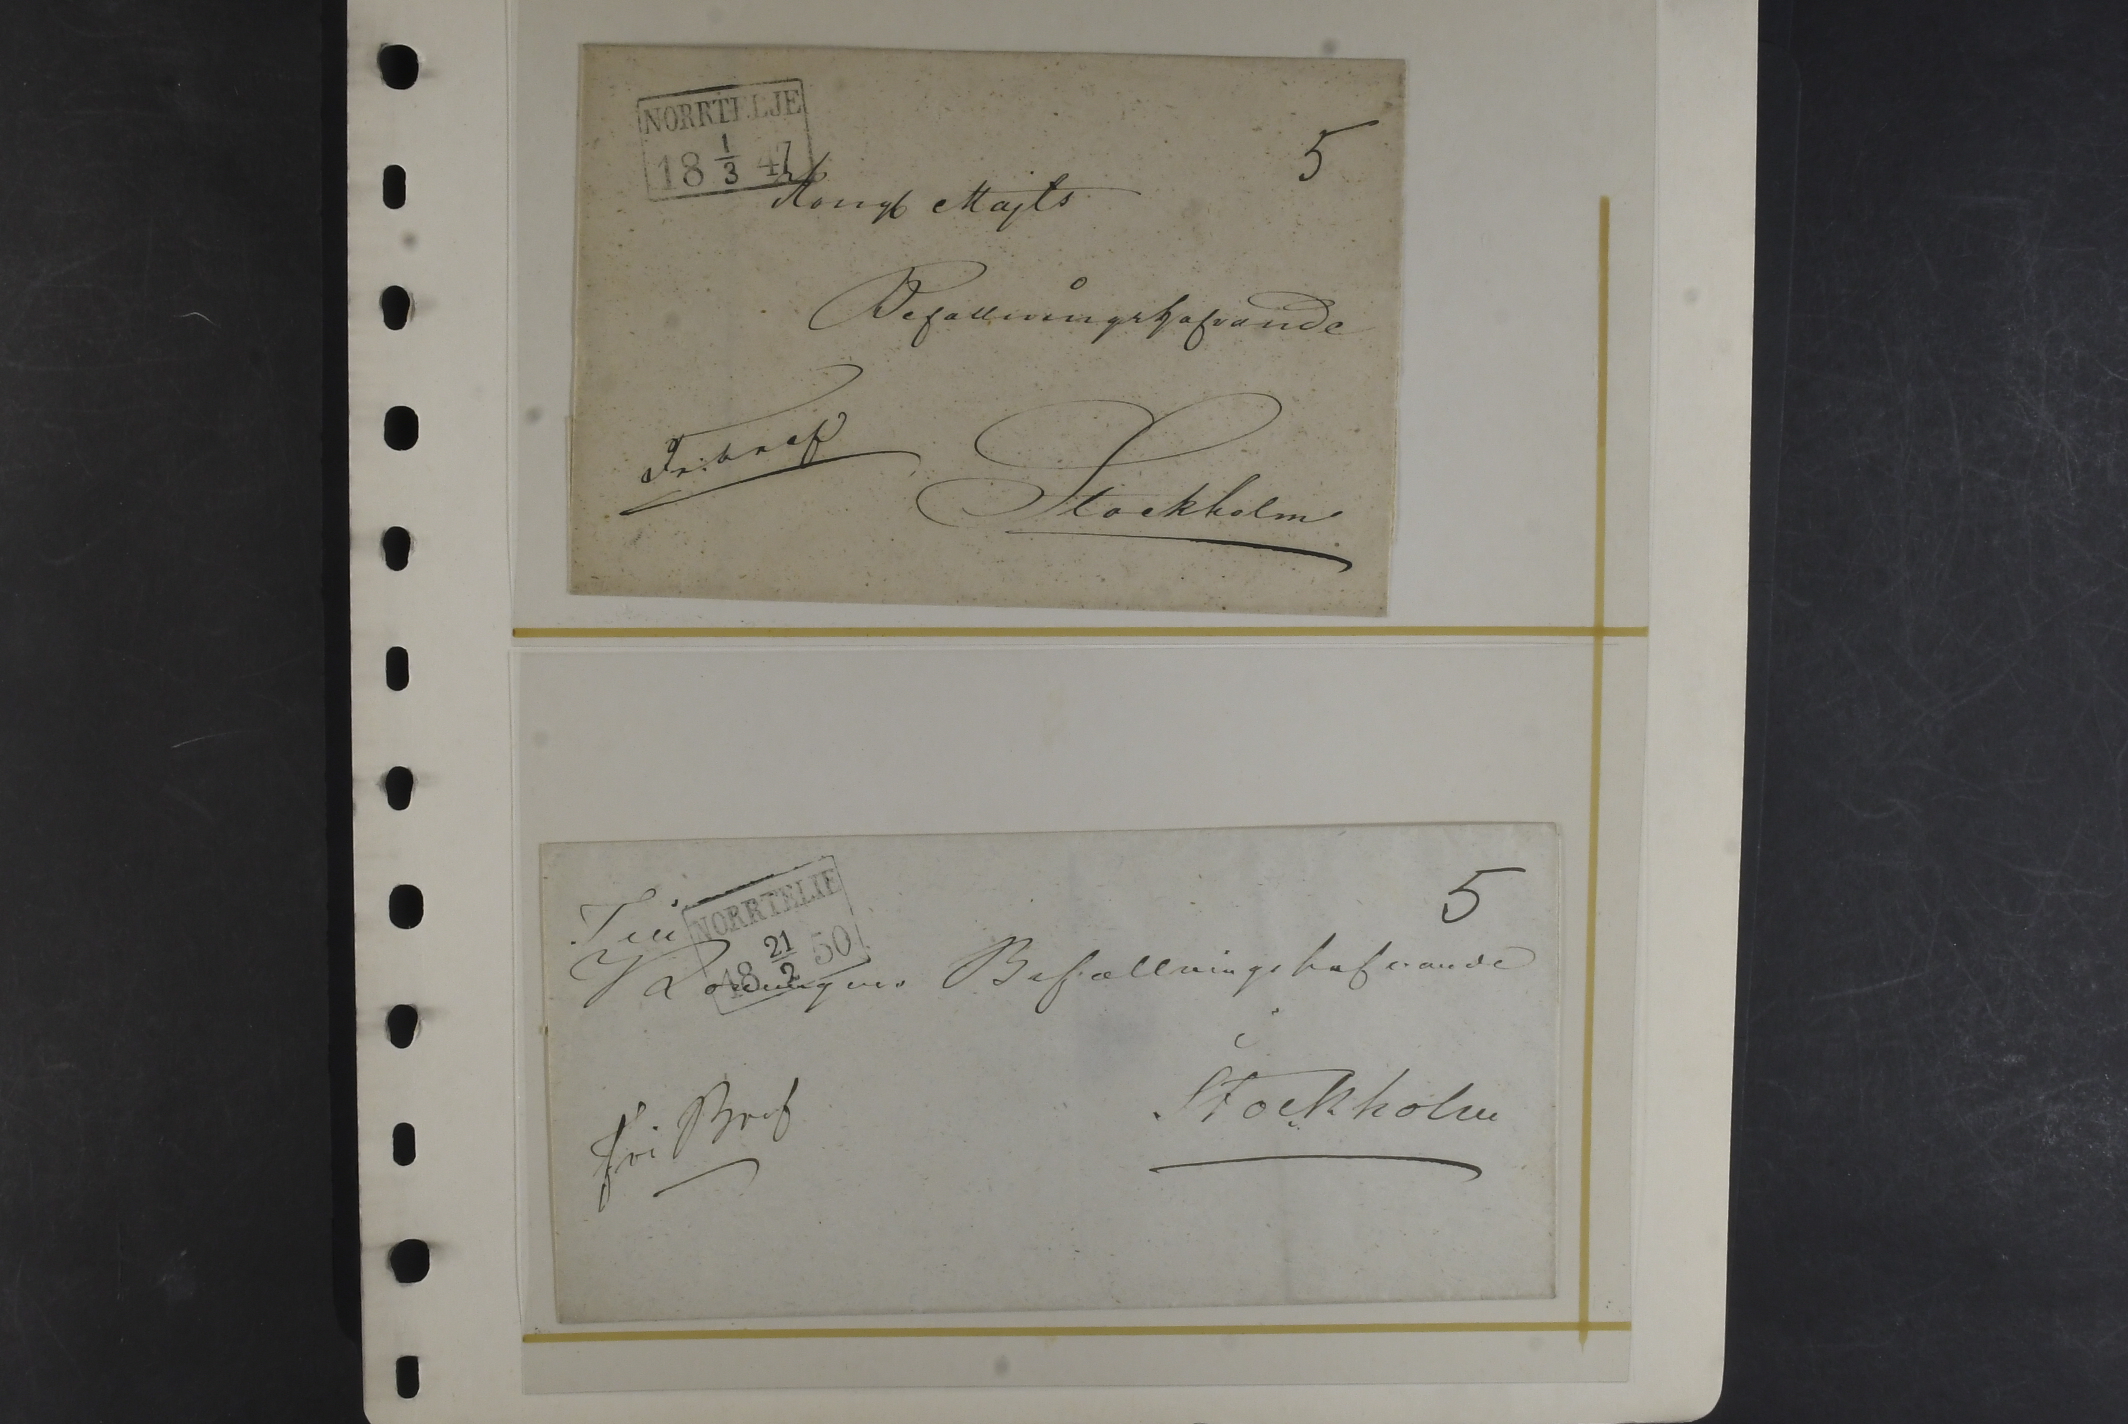 NORRTELJE
18 1/3 47
5
Kongl Majts
Befallningshafvande
Fribref
Stockholm
5
Till
NORRTELJE
18 21/2 50
Konungens Befallningshafvande
i
Fri Bref
Stockholm